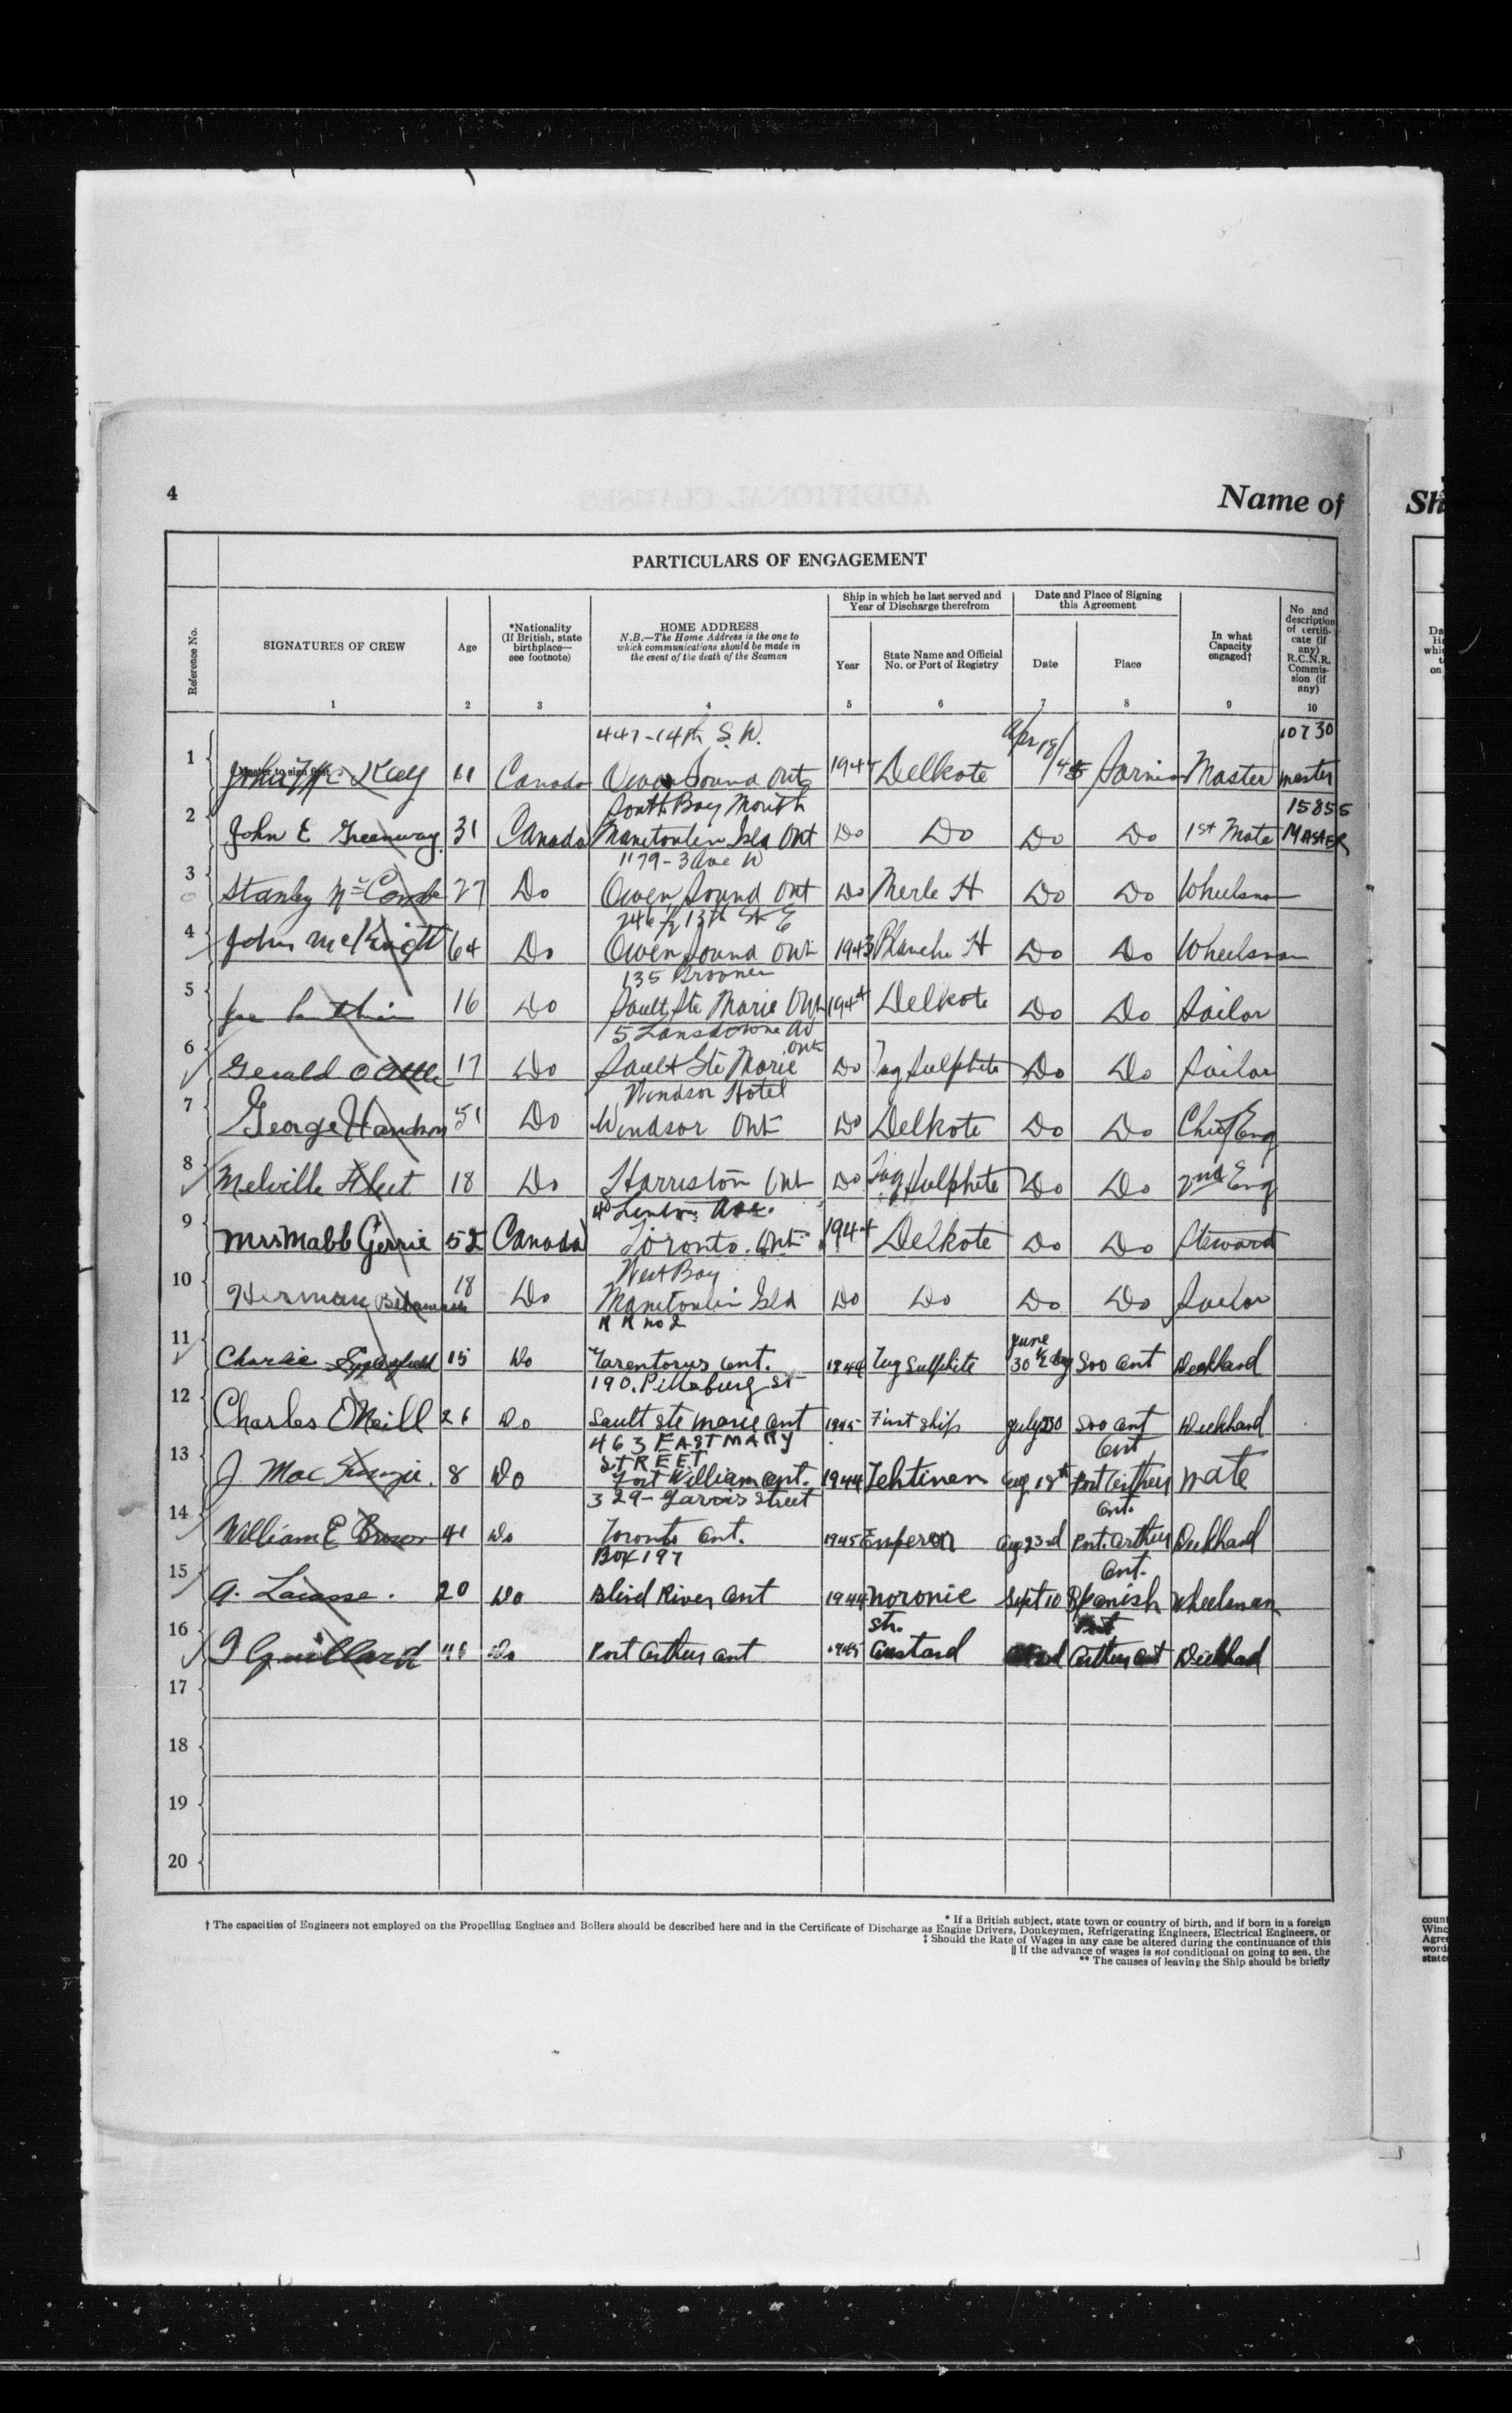 4
Name of
Sh
PARTICULARS OF ENGAGEMENT
Reference No.
SIGNATURES OF CREW
1
Age
2
*Nationality
(If British, state
birthplace—
see footnote)
3
HOME ADDRESS
N.B.—The Home Address is the one to
which communications should be made in
the event of the death of the Seaman
4
Ship in which he last served and
Year of Discharge therefrom
Year
5
State Name and Official
No. or Port of Registry
6
Date and Place of Signing
this Agreement
Date
7
Place
8
In what
Capacity
engaged†
9
No and
description
of certifi-
cate (if
any)
R.C.N.R.
Commis-
sion (if
any)
10
447-14th S. W. 10730
1 Master to sign first John Canada Owen Sound Ont 1944 Delkote Apr 19/45 Sarnia Master master
South Bay Mouth 15855
2 John E Greenway 31 Canada Manitoulin Isld Ont Do Do Do Do 1st Mate MASTER
1179-3 Ave W
3 Stanley 27 Do Owen Sound Ont Do Merle H Do Do Wheelsman
246½ 13th St E
4 John McKnight 64 Do Owen Sound Ont 1943 Blanche H Do Do Wheelsman
135
5 16 Do Sault Ste Marie Ont 1944 Delkote Do Do Sailor
5 Lansdowne Av
Ont
6 Gerald 17 Do Sault Ste Marie Do Tug Sulphite Do Do Sailor
Windsor Hotel
7 George 51 Do Windsor Ont Do Delkote Do Do Chief Eng
8 Melville 18 Do Harriston Ont Do Tug Sulphite Do Do 2nd Eng
40 Ave.
9 Mrs Mabb Gerrie 52 Canada Toronto. Ont 1944 Delkote Do Do Steward
West Bay
10 Herman 18 Do Manitoulin Isld Do Do Do Do Sailor
R R no 2 June
11 Charlie 15 Do Tarentorus Ont. 1944 Tug Sulphite 30 ½ day Soo Ont Deckhand
190. Pittsburg St
12 Charles O'Neill 26 Do Sault Ste Marie Ont 1945 First ship July Soo Ont Deckhand
463 EAST MARY
STREET Ont
13 J. Mac 8 Do Fort William Ont. 1944 Lehtinen Aug 18th Port Arthur Mate
329- Jarvis Street Ont.
14 William E Brown 41 Do Toronto Ont. 1945 Emperor Aug 23rd Port. Arthur Deckhand
Box 197 Ont.
15 A. Lacasse. 20 Do Blind River Ont 1944 Noronic Sept 10 Spanish Wheelsman
Str. Port
16 46 Do Port Arthur Ont 1945 Arthur Ont Deckhand
17
18
19
20
* If a British subject, state town or country of birth, and if born in a foreign
† The capacities of Engineers not employed on the Propelling Engines and Boilers should be described here and in the Certificate of Discharge as Engine Drivers, Donkeymen, Refrigerating Engineers, Electrical Engineers, or
‡ Should the Rate of Wages in any case be altered during the continuance of this
|| If the advance of wages is not conditional on going to sea, the
** The causes of leaving the Ship should be briefly